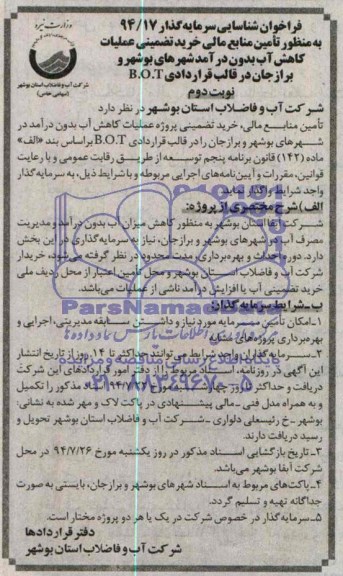 وزارت نیرو
شرکت آب و فاضلاب استان بوشهر
(سهامی خاص)
فراخوان شناسایی سرمایه گذار ۹۴/۱۷
به منظور تأمین منابع مالی خرید تضمینی عملیات
کاهش آب بدون درآمد شهرهای بوشهر و
برازجان در قالب قراردادی B.O.T
نوبت دوم
شرکت آب و فاضلاب استان بوشهر در نظر دارد
تأمین منابع مالی، خرید تضمینی پروژه عملیات کاهش آب بدون درآمد در
شهرهای بوشهر و برازجان را در قالب قراردادی B.O.T براساس بند «الف»
ماده (۱۴۲) قانون برنامه پنجم توسعه از طریق رقابت عمومی و با رعایت
قوانین، مقررات و آیین‌نامه‌های اجرایی مربوطه و با شرایط ذیل، به سرمایه‌گذار
واجد شرایط واگذار نماید.
الف) شرح مختصری از پروژه:
شرکت آبفا استان بوشهر به منظور کاهش میزان آب بدون درآمد و مدیریت
مصرف آب در شهرهای بوشهر و برازجان، نیاز به سرمایه‌گذاری در این بخش
دارد. دوره احداث و بهره‌برداری، مدت محدود در نظر گرفته می‌شود، خریدار
شرکت آب و فاضلاب استان بوشهر و محل تأمین اعتبار از محل ردیف ملی
خرید تضمینی آب یا افزایش درآمد ناشی از عملیات می‌باشد.
ب- شرایط سرمایه گذار:
۱- امکان تأمین سرمایه مورد نیاز و داشتن سابقه مدیریتی، اجرایی و
بهره‌برداری پروژه‌های مشابه
۲- سرمایه‌گذاران واجد شرایط می‌توانند حداکثر تا ۱۴ روز از تاریخ انتشار
این آگهی در روزنامه، اسناد مربوط را از دفتر امور قراردادهای این شرکت
دریافت و حداکثر تا روز مورخ ۹۴/۷ اسناد مذکور را تکمیل
و به همراه مدل فنی - مالی پیشنهادی در پاکت لاک و مهر شده به نشانی:
بوشهر - خ رئیسعلی دلواری - شرکت آب و فاضلاب استان بوشهر تحویل و
رسید دریافت دارند.
۳- تاریخ بازگشایی اسناد مذکور در روز یکشنبه مورخ ۹۴/۷/۲۶ در محل
شرکت آبفا بوشهر می‌باشد.
۴- پاکت‌های مربوط به اسناد شهرهای بوشهر و برازجان، بایستی به صورت
جداگانه تهیه و تسلیم گردد.
۵- سرمایه‌گذار در خصوص شرکت در یک یا هر دو پروژه مختار است.
دفتر قراردادها
شرکت آب و فاضلاب استان بوشهر
ParsNamadData
پایگاه خبری رسانه مناقصه و مزایده
۰۲۱-۸۸۳۴۹۶۷۰-۵